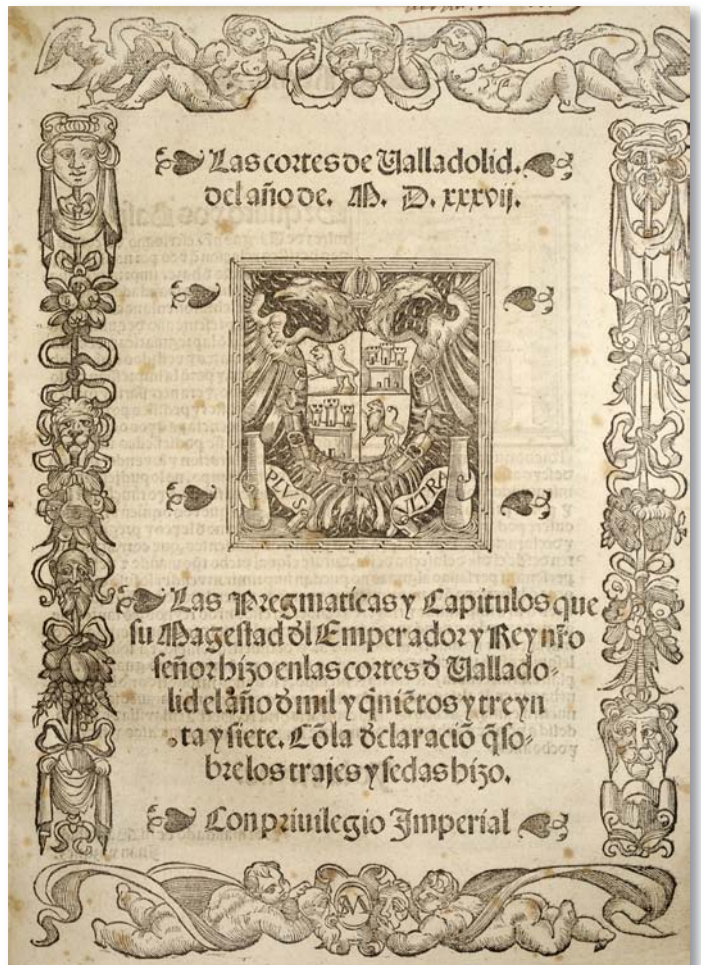 Las cortes de Valladolid.
del año de. M. D. xxxvij.
PLVS
VLTRA
Las Pregmaticas y Capitulos que
su Magestad dl Emperador y Rey nr̃o
señor hizo enlas cortes d̃ Vallado-
lid el año d̃ mil y q̃niẽtos y treyn
ta y siete. Cõ la d̃claraciõ q̃ so-
bre los trajes y sedas hizo.
Con priuilegio Imperial
M